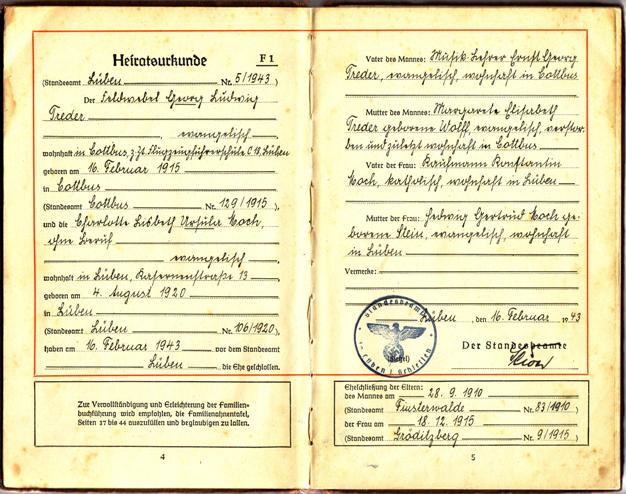 Heiratsurkunde F 1
(Standesamt Lüben Nr. 5/1943)
Der Feldwebel Georg Ludwig
Treder
, evangelisch,
wohnhaft in Cottbus, z. Zt. Flugzeugführerschule C 12, Lüben
geboren am 16. Februar 1915
in Cottbus
(Standesamt Cottbus Nr. 129/1915)
und die Charlotte Lisbeth Ursula Hoch,
ohne Beruf
evangelisch,
wohnhaft in Lüben, Kasernenstraße 13
geboren am 4. August 1920
in Lüben
(Standesamt Lüben Nr. 106/1920)
haben am 16. Februar 1943 vor dem Standesamt
Lüben die Ehe geschlossen.
Zur Vervollständigung und Erleichterung der Familien-
buchführung wird empfohlen, die Familienahnentafel,
Seiten 17 bis 44 auszufüllen und beglaubigen zu lassen.
4
Vater des Mannes: Musik-Lehrer Ernst Georg
Treder, evangelisch, wohnhaft in Cottbus
Mutter des Mannes: Margarete Elisabeth
Treder geborene Wolff, evangelisch, verstor-
ben und zuletzt wohnhaft in Cottbus
Vater der Frau: Kaufmann Konstantin
Hoch, katholisch, wohnhaft in Lüben
Mutter der Frau: Hedwig Gertrud Hoch ge-
borene Stein, evangelisch, wohnhaft
in Lüben
Vermerke:
Lüben, den 16. Februar 1943
Der Standesbeamte
(Siegel)
Eheschließung der Eltern:
des Mannes am 28. 9. 1910
(Standesamt Finsterwalde Nr. 83/1910)
der Frau am 18. 12. 1915
(Standesamt Gröditzberg Nr. 9/1915)
5